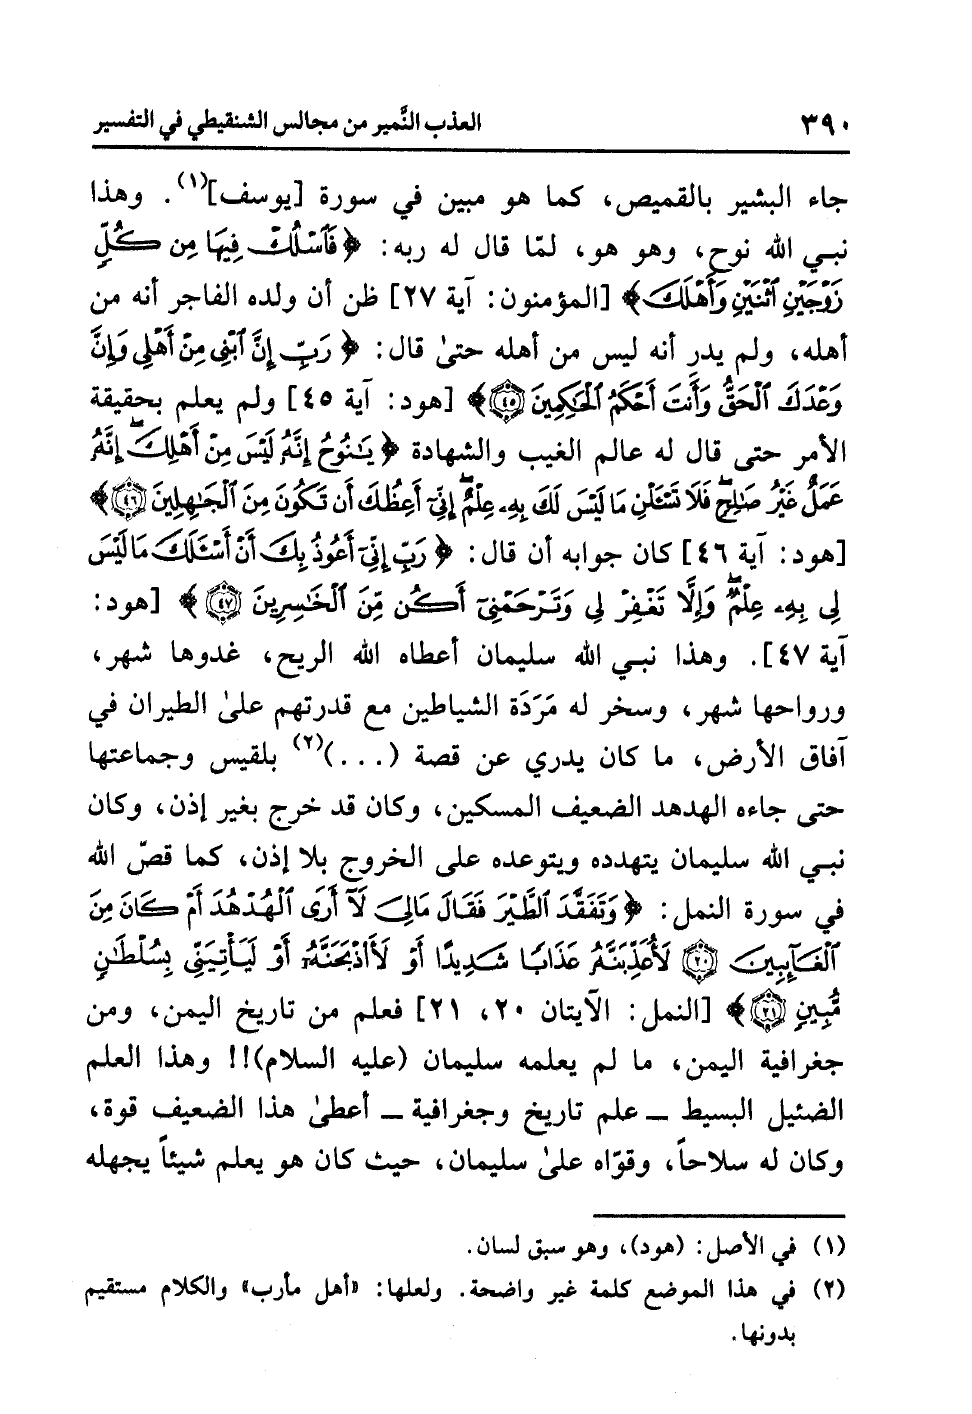 ٣٩٠ العذب النَّمير من مجالس الشنقيطي في التفسير
جاء البشير بالقميص، كما هو مبين في سورة [يوسف](١). وهذا
نبـي الله نوح، وهو هو، لمّا قال له ربه: ﴿ فَٱسْلُكْ فِيهَا مِن كُلٍّ
زَوْجَيْنِ ٱثْنَيْنِ وَأَهْلَكَ﴾ [المؤمنون: آية ٢٧] ظن أن ولده الفاجر أنه من
أهله، ولم يدر أنه ليس من أهله حتىٰ قال: ﴿ رَبِّ إِنَّ ٱبْنِى مِنْ أَهْلِى وَإِنَّ
وَعْدَكَ ٱلْحَقُّ وَأَنتَ أَحْكَمُ ٱلْحَٰكِمِينَ ۝٤٥﴾ [هود: آية ٤٥] ولم يعلم بحقيقة
الأمر حتى قال له عالم الغيب والشهادة ﴿ يَٰنُوحُ إِنَّهُۥ لَيْسَ مِنْ أَهْلِكَ ۖ إِنَّهُۥ
عَمَلٌ غَيْرُ صَٰلِحٍ ۖ فَلَا تَسْـَٔلْنِ مَا لَيْسَ لَكَ بِهِۦ عِلْمٌ ۖ إِنِّىٓ أَعِظُكَ أَن تَكُونَ مِنَ ٱلْجَٰهِلِينَ ۝٤٦﴾
[هود: آية ٤٦] كان جوابه أن قال: ﴿ رَبِّ إِنِّىٓ أَعُوذُ بِكَ أَنْ أَسْـَٔلَكَ مَا لَيْسَ
لِى بِهِۦ عِلْمٌ ۖ وَإِلَّا تَغْفِرْ لِى وَتَرْحَمْنِىٓ أَكُن مِّنَ ٱلْخَٰسِرِينَ ۝٤٧ ﴾ [هود:
آية ٤٧]. وهذا نبـي الله سليمان أعطاه الله الريح، غدوها شهر،
ورواحها شهر، وسخر له مَرَدَة الشياطين مع قدرتهم علىٰ الطيران في
آفاق الأرض، ما كان يدري عن قصة (...)(٢) بلقيس وجماعتها
حتى جاءه الهدهد الضعيف المسكين، وكان قد خرج بغير إذن، وكان
نبـي الله سليمان يتهدده ويتوعده على الخروج بلا إذن، كما قصّ الله
في سورة النمل: ﴿ وَتَفَقَّدَ ٱلطَّيْرَ فَقَالَ مَالِىَ لَآ أَرَى ٱلْهُدْهُدَ أَمْ كَانَ مِنَ
ٱلْغَآئِبِينَ ۝٢٠ لَأُعَذِّبَنَّهُۥ عَذَابًا شَدِيدًا أَوْ لَأَا۟ذْبَحَنَّهُۥٓ أَوْ لَيَأْتِيَنِّى بِسُلْطَٰنٍ
مُّبِينٍ ۝٢١﴾ [النمل: الآيتان ٢٠، ٢١] فعلم من تاريخ اليمن، ومن
جغرافية اليمن، ما لم يعلمه سليمان (عليه السلام)!! وهذا العلم
الضئيل البسيط ــ علم تاريخ وجغرافية ــ أعطىٰ هذا الضعيف قوة،
وكان له سلاحاً، وقوّاه علىٰ سليمان، حيث كان هو يعلم شيئاً يجهله
(١) في الأصل: (هود)، وهو سبق لسان.
(٢) في هذا الموضع كلمة غير واضحة. ولعلها: «أهل مأرب» والكلام مستقيم
بدونها.